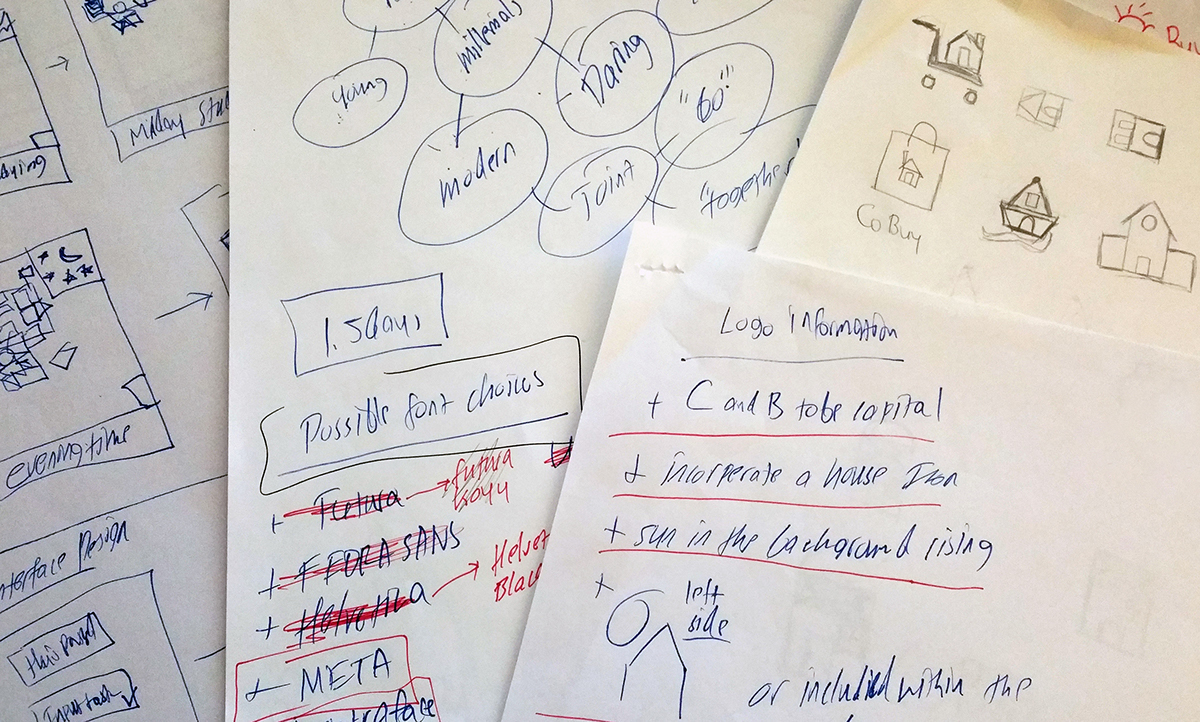 Midday
evening time
Interface Design
this
Input task
young
millenials
Daring
modern
"Go"
Joint
"together"
1.5 days
Possible font choices
+ Futura → futura
+ FEDRA SANS
+ Helvetica → Helvet
Blac
+ META
CoBuy
Logo information
+ C and B to be capital
+ incorperate a house Icon
+ sun in the background rising
+ left
side
or included within the